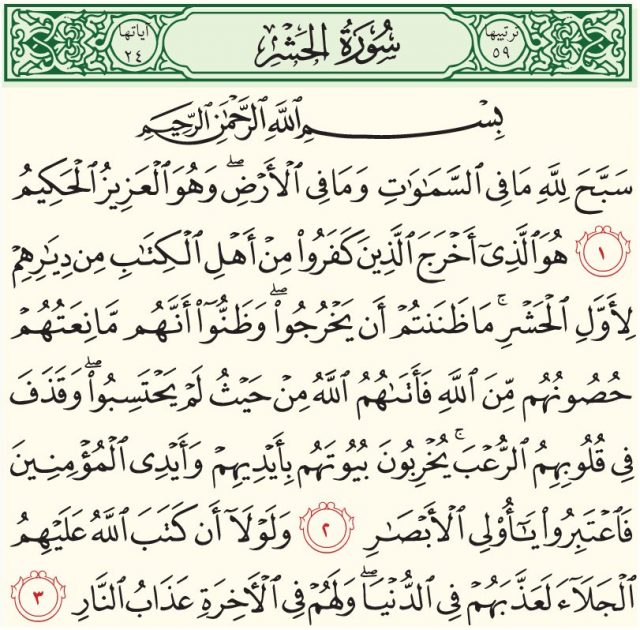 ترتيبها ٥٩ سُورَةُ الحَشْرِ آياتها ٢٤
بِسْمِ ٱللَّهِ ٱلرَّحْمَٰنِ ٱلرَّحِيمِ
سَبَّحَ لِلَّهِ مَا فِى ٱلسَّمَٰوَٰتِ وَمَا فِى ٱلْأَرْضِ ۖ وَهُوَ ٱلْعَزِيزُ ٱلْحَكِيمُ
١ هُوَ ٱلَّذِىٓ أَخْرَجَ ٱلَّذِينَ كَفَرُوا۟ مِنْ أَهْلِ ٱلْكِتَٰبِ مِن دِيَٰرِهِمْ
لِأَوَّلِ ٱلْحَشْرِ ۚ مَا ظَنَنتُمْ أَن يَخْرُجُوا۟ ۖ وَظَنُّوٓا۟ أَنَّهُم مَّانِعَتُهُمْ
حُصُونُهُم مِّنَ ٱللَّهِ فَأَتَىٰهُمُ ٱللَّهُ مِنْ حَيْثُ لَمْ يَحْتَسِبُوا۟ ۖ وَقَذَفَ
فِى قُلُوبِهِمُ ٱلرُّعْبَ ۚ يُخْرِبُونَ بُيُوتَهُم بِأَيْدِيهِمْ وَأَيْدِى ٱلْمُؤْمِنِينَ
فَٱعْتَبِرُوا۟ يَٰٓأُو۟لِى ٱلْأَبْصَٰرِ ٢ وَلَوْلَآ أَن كَتَبَ ٱللَّهُ عَلَيْهِمُ
ٱلْجَلَآءَ لَعَذَّبَهُمْ فِى ٱلدُّنْيَا ۖ وَلَهُمْ فِى ٱلْءَاخِرَةِ عَذَابُ ٱلنَّارِ ٣